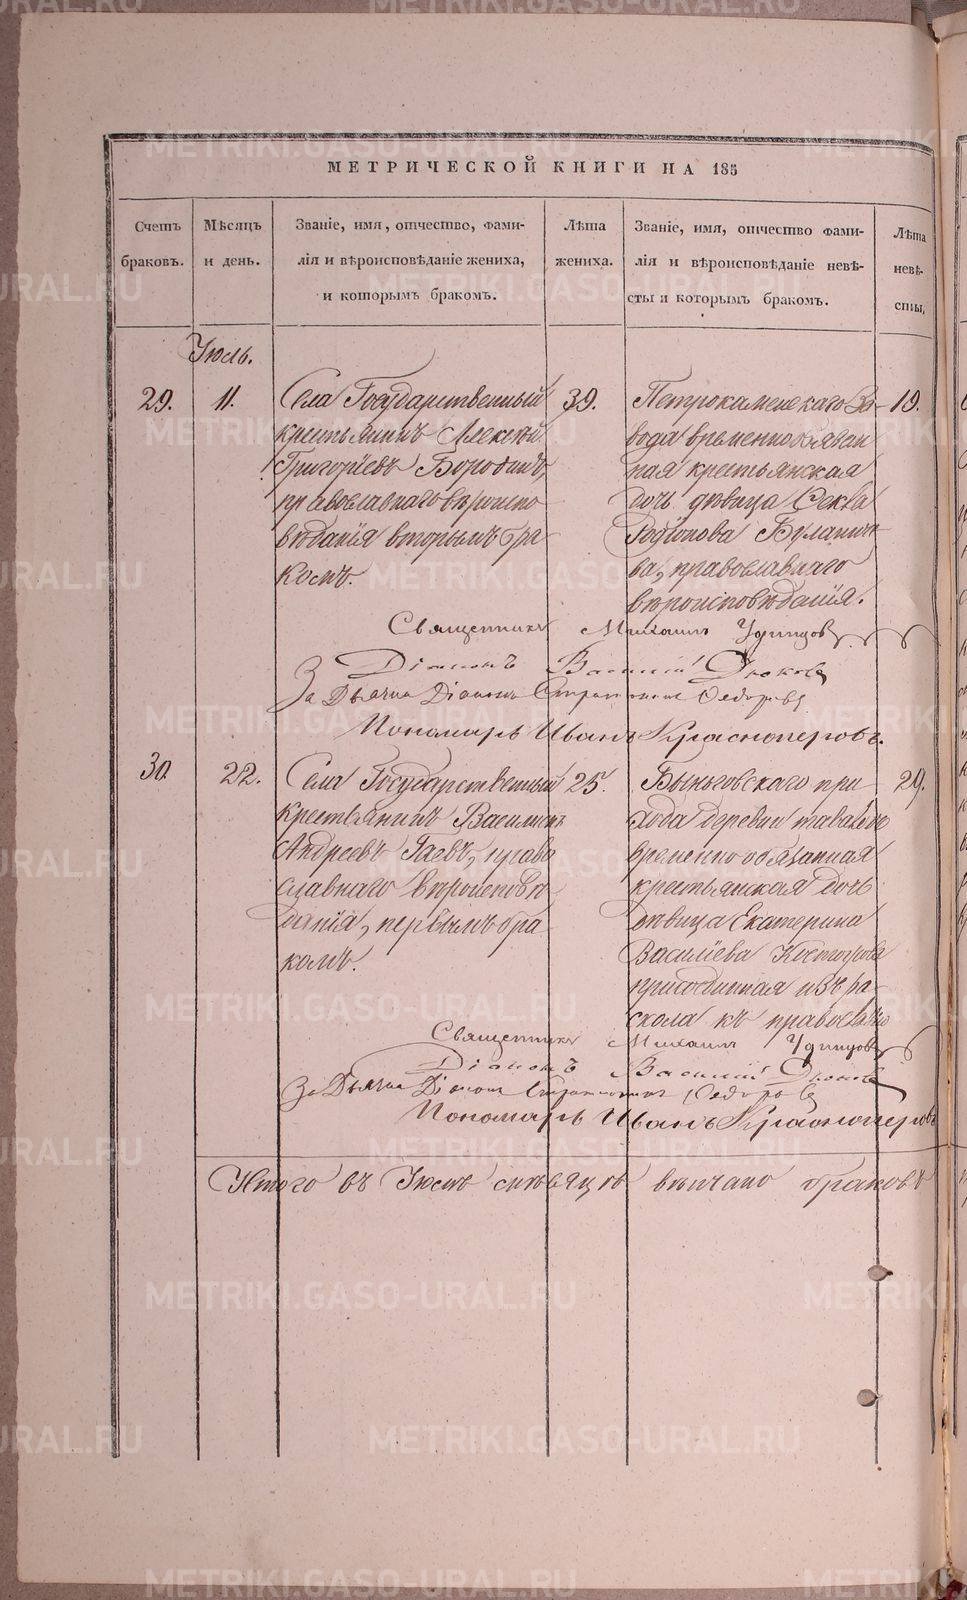 МЕТРИЧЕСКОЙ КНИГИ НА 185
Счетъ браковъ.
Мѣсяцъ и день.
Званіе, имя, отчество, фами-
лія и вѣроисповѣданіе жениха,
и которымъ бракомъ.
Лѣта жениха.
Званіе, имя, отчество фами-
лія и вѣроисповѣданіе невѣ-
сты и которымъ бракомъ.
Лѣта невѣ-
сты,
Іюль.
29.
11.
Села Государственный
крестьянинъ Алексѣй
Григоріевъ Бородинъ,
православнаго вѣроиспо
вѣданія вторымъ бра
комъ.
39.
Петрокаменскаго За-
вода временно обязан
ная крестьянская
дочь дѣвица Ѳекла
Родіонова
православнаго
вѣроисповѣданія.
19.
Священникъ Михаилъ Удинцовъ
Діаконъ Василій Дюковъ
За Дьячка Діаконъ Ѳедоровъ
Пономарь Иванъ Красноперовъ.
30.
22.
Села Государственный
крестьянинъ Василій
Андреевъ Гаевъ, право
славнаго вѣроисповѣ
данія, первымъ бра
комъ.
25.
Быньговскаго при
хода деревни
временно обязанная
крестьянская дочь
дѣвица Екатерина
Василіева
присоединенная изъ ра
скола къ православію
29.
Священникъ Михаилъ Удинцовъ
Діаконъ Василій Дюковъ
За Дьячка Діаконъ Ѳедоровъ
Пономарь Иванъ Красноперовъ
Итого въ Іюлѣ мѣсяцѣ вѣнчано браковъ
METRIKI.GASO-URAL.RU